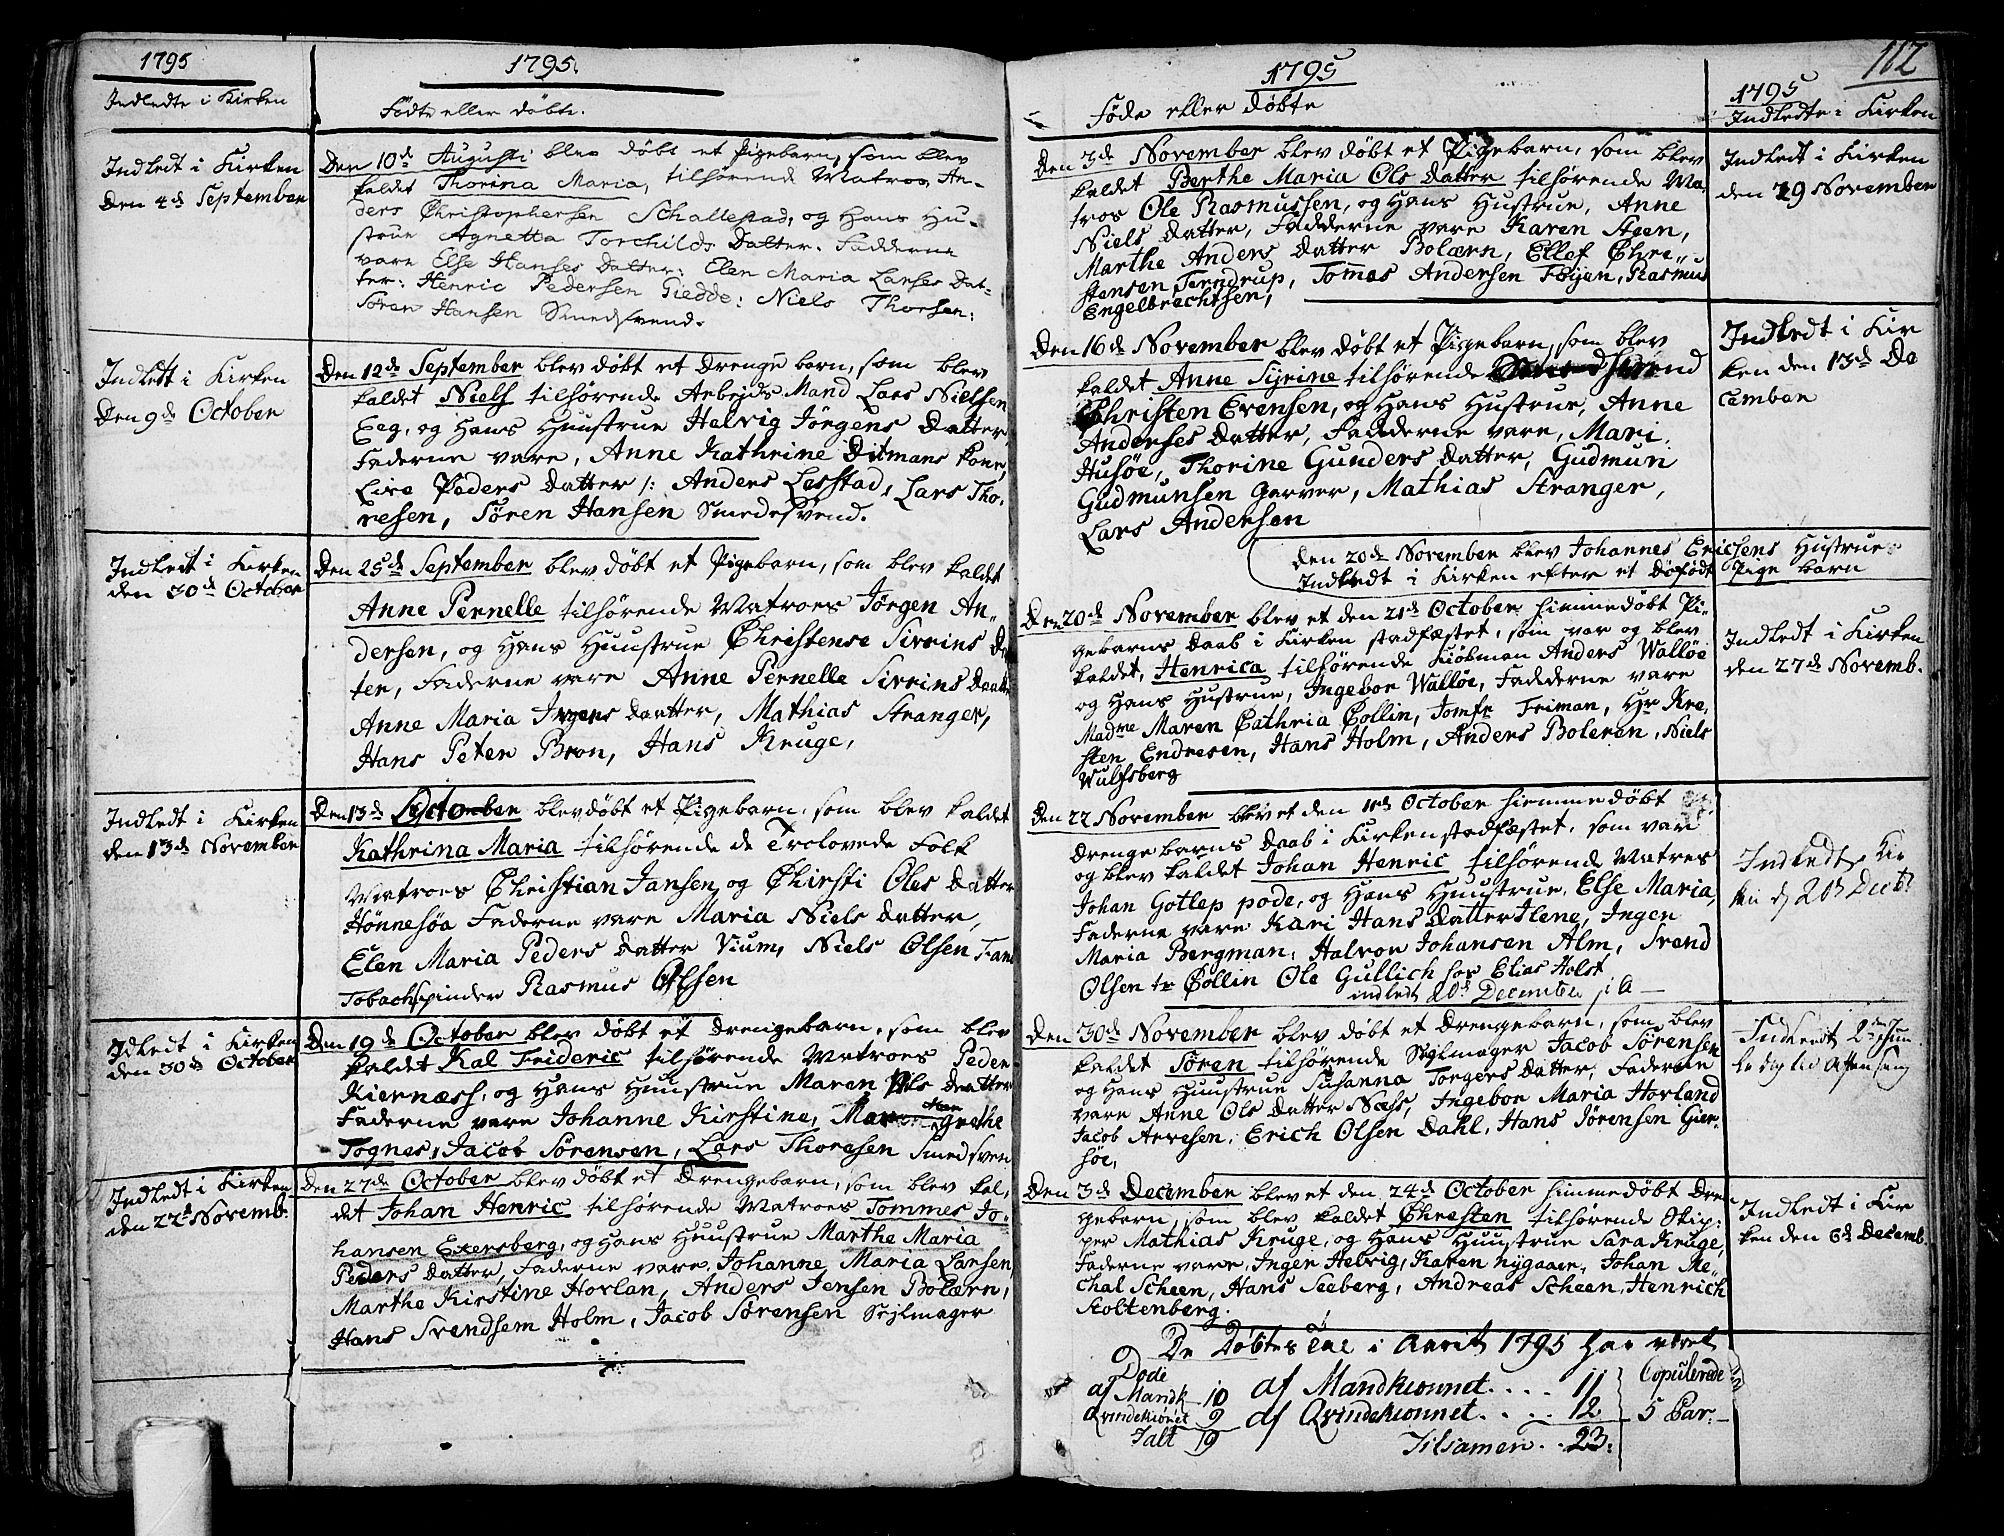 1795
Indledte i Kirken
1795
Fødte eller døbte.
Indledt i Kirken
Den 4de September
Den 10de Augusti blev døbt et Pigebarn, som blev
kaldet Thorina Maria, tilhørende Matros An-
ders Christophersen Schallestad, og Hans Hu-
strue Agnetta Torchilds Datter. Fadderne
vare Else Hanses Datter: Elen Maria Larses Dat-
ter: Henric Pedersen Giedde: Niels Thorsen:
Sören Hansen Smedsvend.
Indledt i Kirken
Den 9de October
Den 12de September blev døbt et Drenge barn, som blev
kaldet Niels tilhørende Arbejds Mand Lars Nielsen
Eeg, og Hans Huustrue Helvig Jörgens Datter
Faderne vare, Anne Kathrine Ditmans Kone,
Live Peders Datter /: Anders Lesstad, Lars Tho-
resen, Sören Hansen Smedesvend.
Indledt i Kirken
den 30de October
Den 25de September blev døbt et Pigebarn, som blev kaldet
Anne Pernelle tilhørende Matroes Jörgen An-
dersen, og Hans Huustrue Christense Sivrins Da
ter, Faderne vare Anne Pernelle Sivrins Daatter
Anne Maria Irgens Daatter, Mathias Stranger,
Hans Peter Bron, Hans Kruge,
Indledt i Kirken
den 13de November
Den 13de October blev døbt et Pigebarn, som blev kaldet
Kathrina Maria tilhørende de Trolovede Folk
Matroes Christian Jansen, og Chirsti Oles Datter
Hönnesöa Faderne vare Maria Niels Datter,
Elen Maria Peders Datter Vium, Niels Olsen
Tobachspinder Rasmus Olsen
Idledt i Kirken
den 30de October
Den 19de October blev døbt et Drengebarn, som blev
kaldet Kal Frideric tilhørende Matroes Peder
Kiernæss, og Hans Huustrue Maren Nils Datter
Faderne vare Johanne Kirstine, Mar grethe
Tognes, Jacob Sörensen, Lars Thoresen Smedsven
Indledt i Kirken
den 22de Novemb.
Den 27de October blev døbt et Drengebarn, som blev kal,
det Johan Henric tilhørende Matroes Tommes Jo-
hansen Exersberg, og Hans Huustrue Marthe Maria
Peders Datter, Faderne vare, Johanne Maria Larsen,
Marthe Kirstine Horlan, Anders Jensen Bolærn,
Hans Svendsem Holm, Jacob Sörensen Sejlmager
112
1795
Føde eller Döbte
1795
Indledte i Kirken
Den 3de November blev døbt et Pigebarn, som blev
kaldet Berthe Maria Ols Datter tilhørende Ma
tros Ole Rasmussen, og Hans Hustrue, Anne
Niels Datter, Fadderne vare Karen Steen,
Marthe Anders Datter Bolærn, Ellef Chre-
stensen Terndrup, Tomas Andersen Föyen, Rasmus
Engelbrechtsen,
Indledt i Kirken
den 29 November
Den 16de November blev døbt et Pigebarn, som blev
kaldet Anne Syrine tilhørende svend
Christen Evensen, og Hans Hustrue, Anne
Anderses Datter, Fadderne vare, Mari
Husöe, Thorine Gunders Datter, Gudmun
Gudmunsen Garver, Mathias Stranger,
Lars Andersen
Indledt i Kir
ken den 13de De
cember
Den 20de November blev Johannes Ericsens Hustrue
Indledt i Kirken efter et dödfödt Pige barn
Den 20de November blev et den 21de October himmedøbt Pi-
gebarns Daab i Kirken stadfæstet, som var og blev
kaldet, Henrica tilhørende Kiöbman Anders Wallöe
og Hans Hustrue, Ingebor Wallöe, Fadderne vare
Madme Maren Cathria Collin, Jomfr Friman, Hr Kre,
sten Endresen, Hans Holm, Anders Boleren, Niels
Wulfsberg
Indledt i Kirken
den 27de Novemb.
Den 22 November blev et den 11de October hiemmedøbt
Drenge barns Daab i Kirken stadfæstet, som var
og blev kaldet Johan Henric tilhørende Matros
Johan Gotlep pode, og Hans Huustrue, Else Maria,
Faderne vare Kari Hans Datter Ilene, Ingen
Maria Bergman, Halvor Johansen Alm, Svend
Olsen tr Collin Ole Gullich for Elias Holst
indledt 20de December
Indledt Kir
ken d 20 Decbr
Den 30de November blev døbt et Drengebarn, som blev
kaldet Sören tilhørende Sejlmager Jacob Sörensen
og Hans Huustrue Susanna Torgers Datter, Faderne
vare Anne Ols Datter Næss, Ingebor Maria Horland
Jacob Arvesen, Erich Olsen Dahl, Hans Jörensen Gier-
söe,
Indledt 2den Juu
ledag til Aftensang
Den 3de December blev et den 24de October himmedøbt Dre
gebarn, som blev kaldet Chresten tilhørende Skip:
per Mathias Kruge, og Hans Huustrue Sara Kruge,
Faderne vare, Inger Helvig, Karen Nygaar, Johan Me-
chal Scheen, Hans Seeberg, Andreas Scheen, Henrich
Stoltenberg.
Indledt i Kir
ken den 6te Decemb.
De Döbtes Tal i Aaret 1795 har været
Döde
af Mandk 10
Qvindekiönet 9
Ialt 19
af Mandkiönnet.... 11
af Qvindekiönnet.... 12
Tilsamen.. 23:
Copulerede
5 Par.